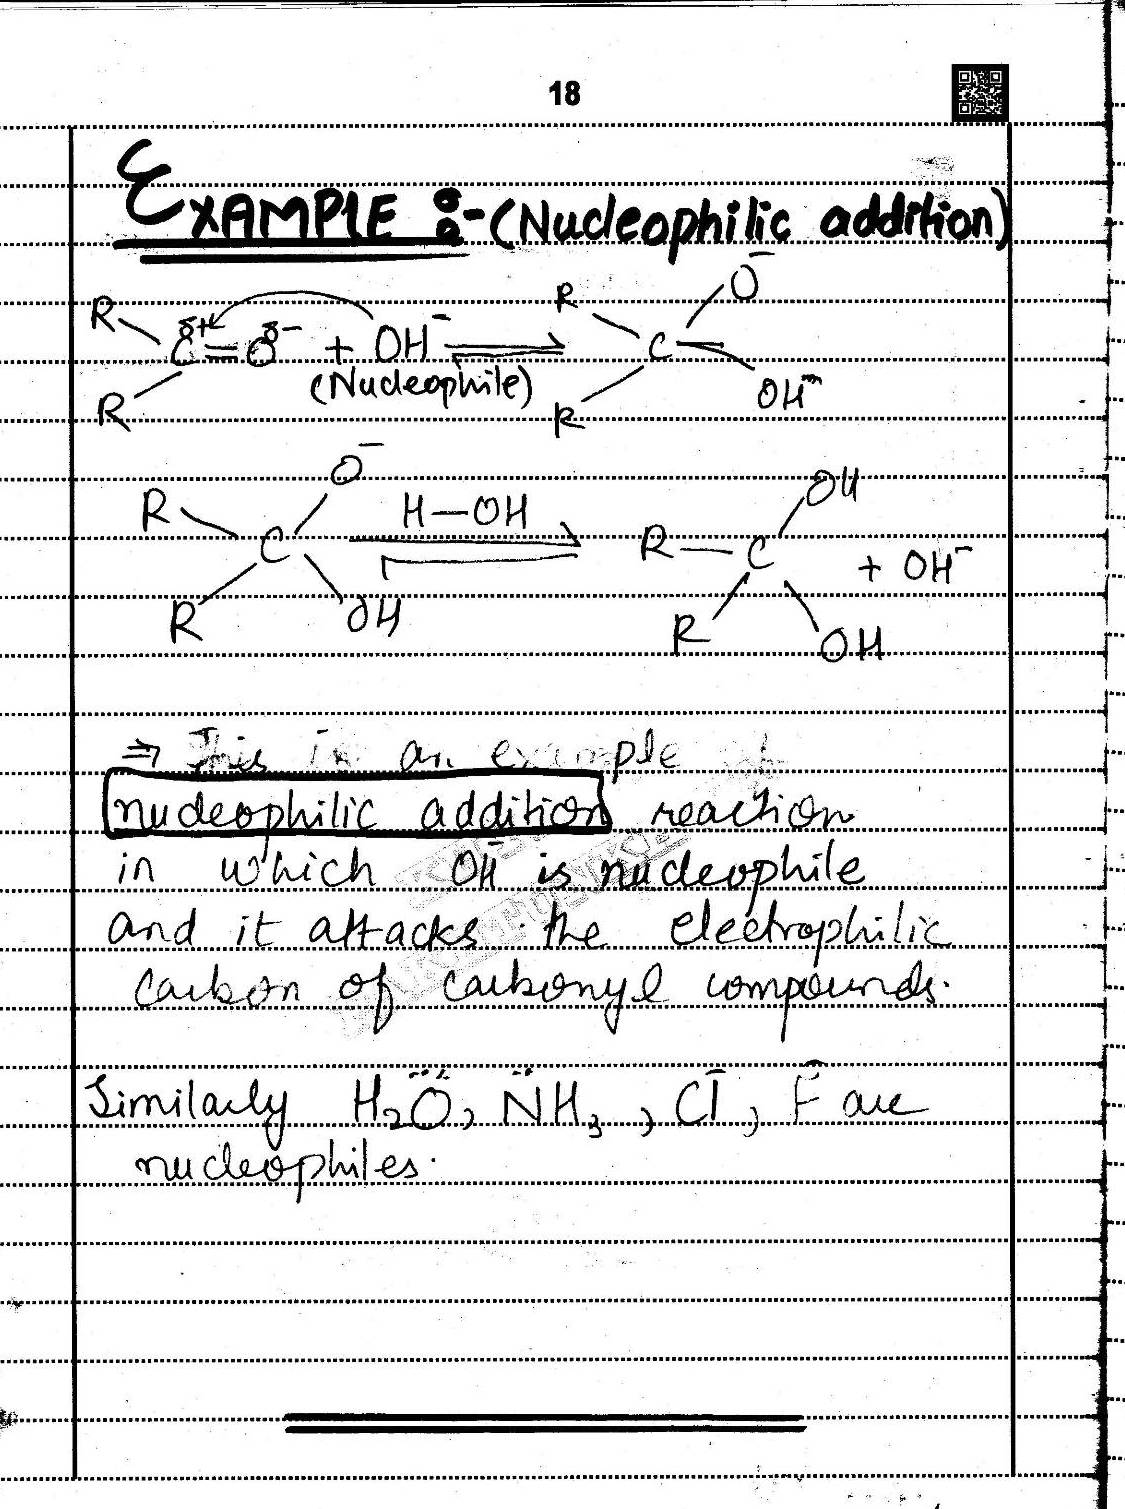 18
EXAMPLE :-(Nucleophilic addition)
R R
R δ+ C = O δ- + OH⁻ ⇌ R C O⁻
(Nucleophile) OH
R R
R C O⁻ H—OH ⇌ R—C OH + OH⁻
R OH R OH
⇒ This is an example of
nucleophilic addition reaction
in which OH⁻ is nucleophile
and it attacks the electrophilic
carbon of carbonyl compounds.
Similarly H₂Ö, N̈H₃, Cl⁻, F⁻ are
nucleophiles.